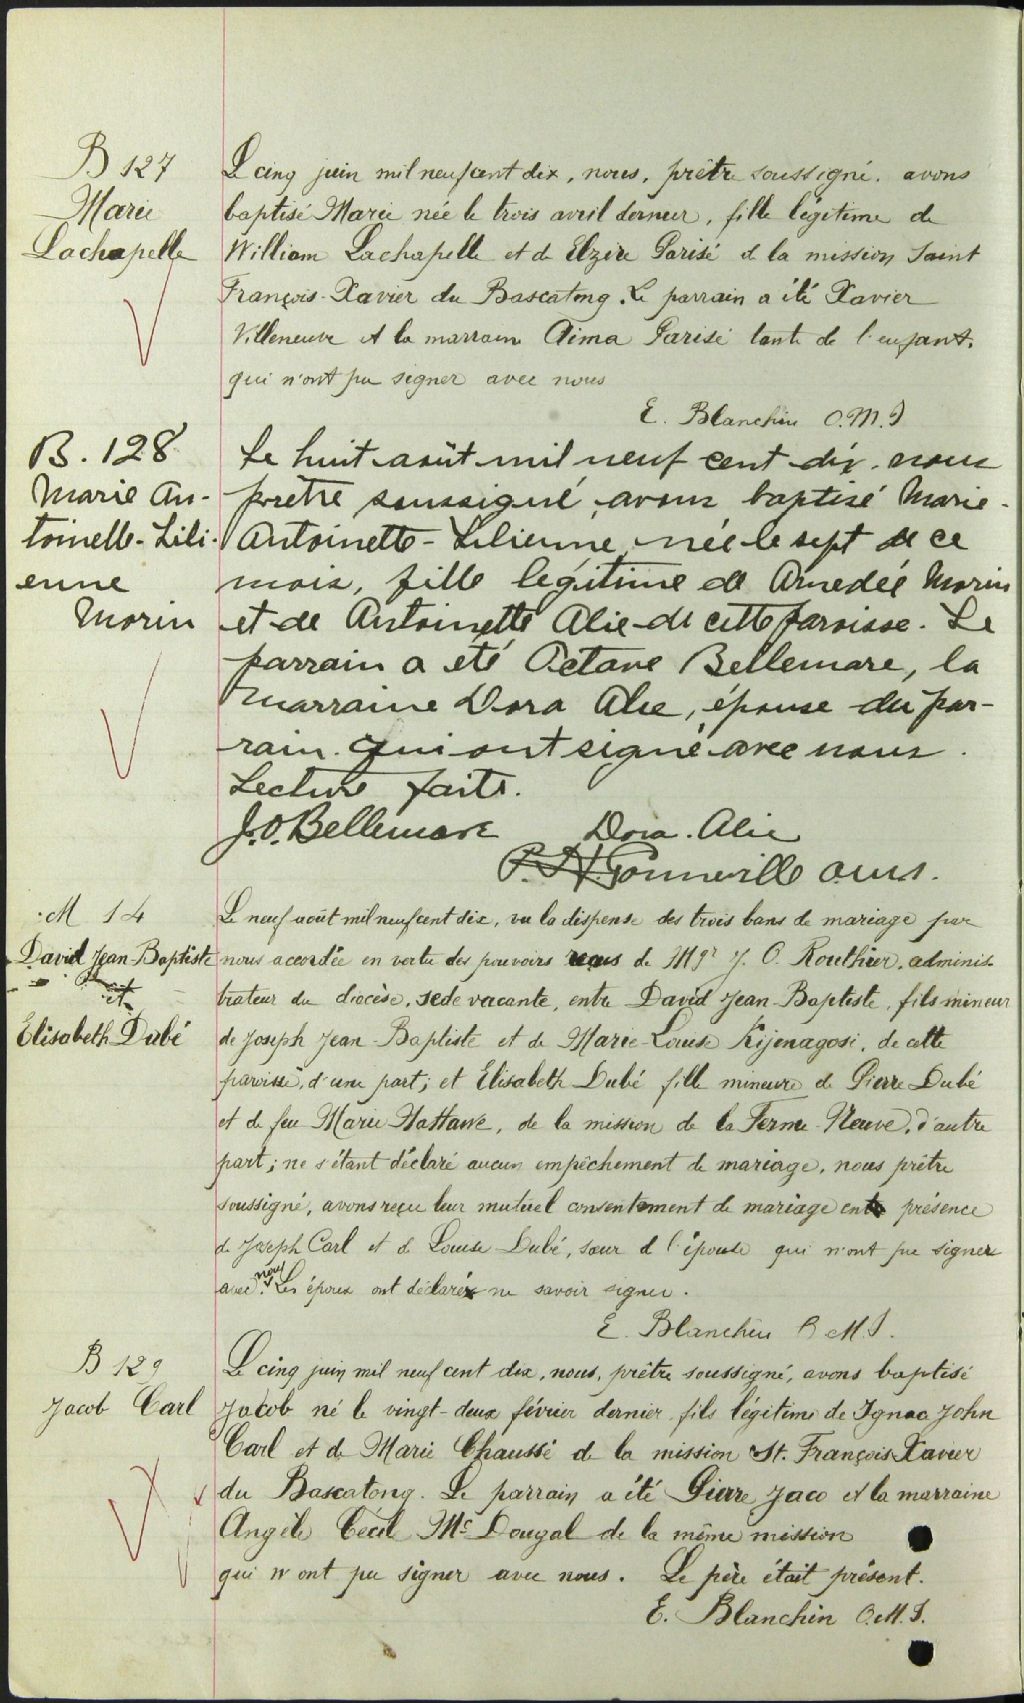 B 127
Marie
Lachapelle
Le cinq juin mil neuf cent dix, nous, prêtre soussigné, avons
baptisé Marie née le trois avril dernier, fille légitime de
William Lachapelle et de Elzire Parisé de la mission Saint
François-Xavier du Bascatong. Le parrain a été Xavier
Villeneuve et la marraine Aima Parisé tante de l'enfant.
qui n'ont pu signer avec nous
E. Blanchin O.M.I
B. 128
Marie An-
toinette-Lili-
enne
Morin
Le huit août mil neuf cent dix, nous
prêtre soussigné, avons baptisé Marie-
Antoinette-Lilienne, née le sept de ce
mois, fille légitime de Amedée Morin
et de Antoinette Alie de cette paroisse. Le
parrain a été Octave Bellemare, la
marraine Dora Alie, épouse du par-
rain qui ont signé avec nous.
Lecture faite.
J.O. Bellemare Dora. Alie
P. N. Gonneville o.m.i.
M 14
David Jean-Baptiste
et
Elisabeth Dubé
Le neuf août mil neuf cent dix, vu la dispense des trois bans de mariage par
nous accordée en vertu des pouvoirs reçus de Mgr J. O. Routhier, adminis-
trateur du diocèse, sede vacante, entre David Jean-Baptiste, fils mineur
de Joseph Jean-Baptiste et de Marie-Louise Kijenagosi, de cette
paroisse, d'une part; et Elisabeth Dubé fille mineure de Pierre Dubé
et de feu Marie Hattawe, de la mission de la Ferme-Neuve, d'autre
part; ne s'étant déclaré aucun empêchement de mariage, nous prêtre
soussigné, avons reçu leur mutuel consentement de mariage en présence
de Joseph Carl et de Louise Dubé, sœur de l'épouse qui n'ont pu signer
avec nous. Les époux ont déclaré ne savoir signer.
E. Blanchin O M I.
B 129
Jacob Carl
Le cinq juin mil neuf cent dix, nous, prêtre soussigné, avons baptisé
Jacob né le vingt-deux février dernier fils légitime de Ignac John
Carl et de Marie Chaussé de la mission St. François-Xavier
du Bascatong. Le parrain a été Pierre Jaco et la marraine
Angèle Cécil Mc Dougal de la même mission
qui n'ont pu signer avec nous. Le père était présent.
E. Blanchin O.M.I.